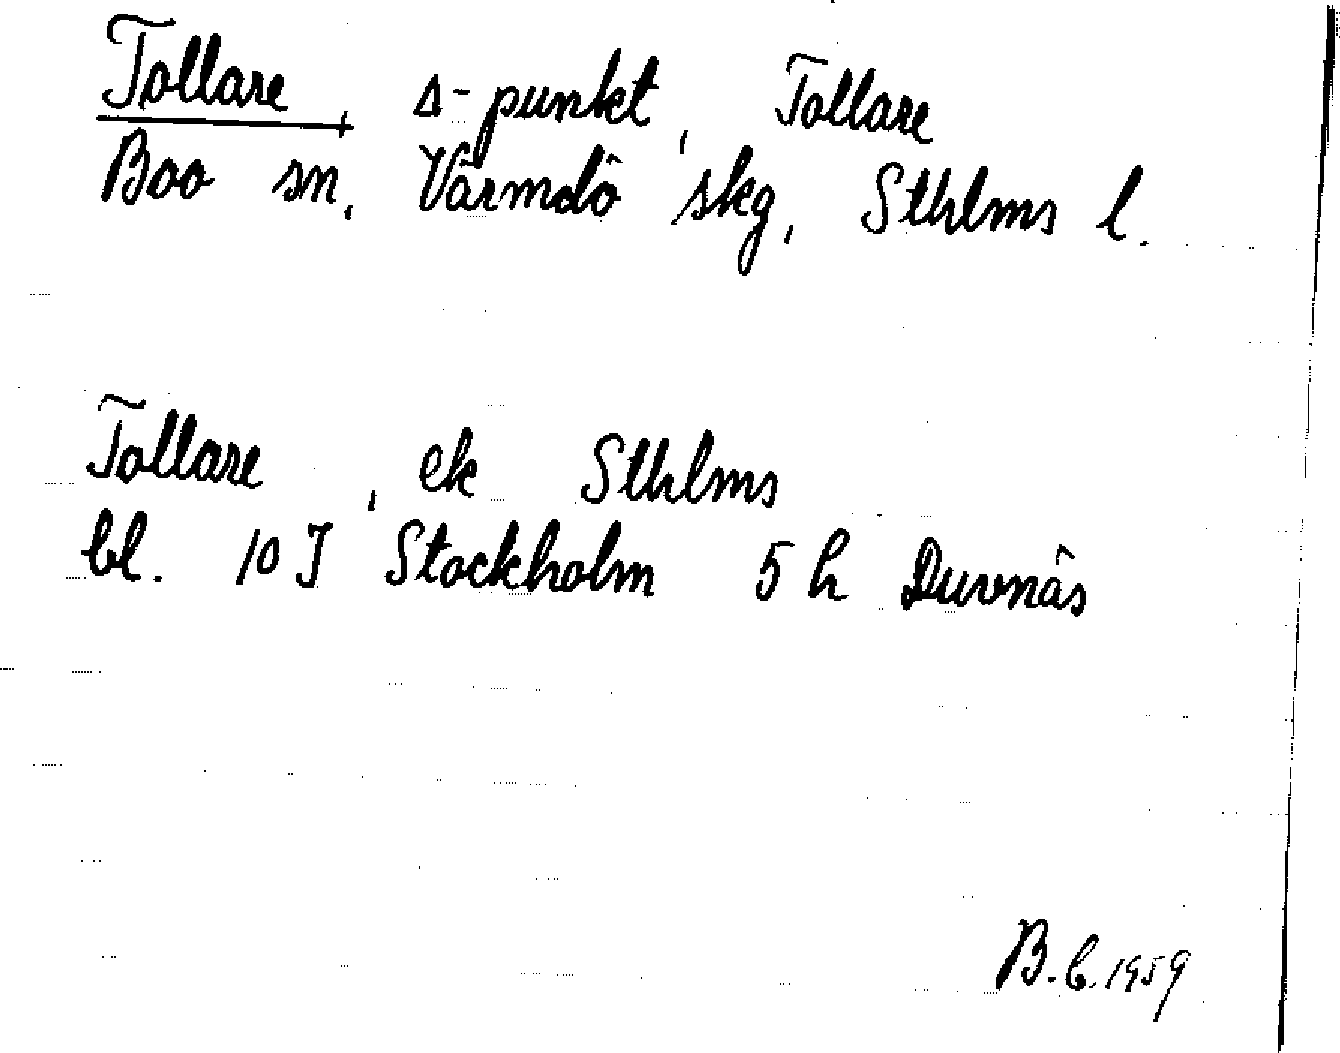 Tollare, Δ-punkt, Tollare
Boo sn, Värmdö skg, Sthlms l.
Tollare, ek Sthlms
bl. 10 J Stockholm 5 h Duvnäs
B.b. 1959